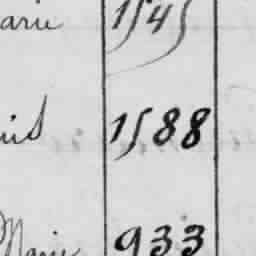 arie 1545
uis 1588
Marie 933